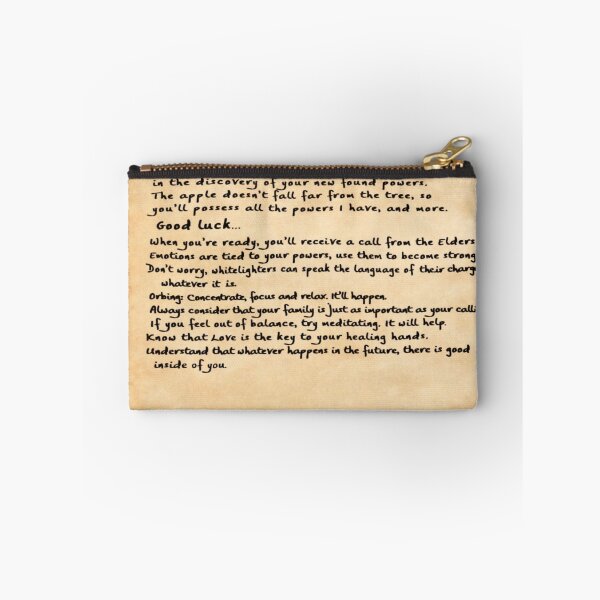 in the discovery of your new found powers.
The apple doesn't fall far from the tree, so
you'll possess all the powers I have, and more.
Good luck...
When you're ready, you'll receive a call from the Elders
Emotions are tied to your powers, use them to become strong
Don't worry, whitelighters can speak the language of their charg
whatever it is.
Orbing: Concentrate, focus and relax. It'll happen.
Always consider that your family is just as important as your calli
If you feel out of balance, try meditating. It will help.
Know that Love is the key to your healing hands.
Understand that whatever happens in the future, there is good
inside of you.